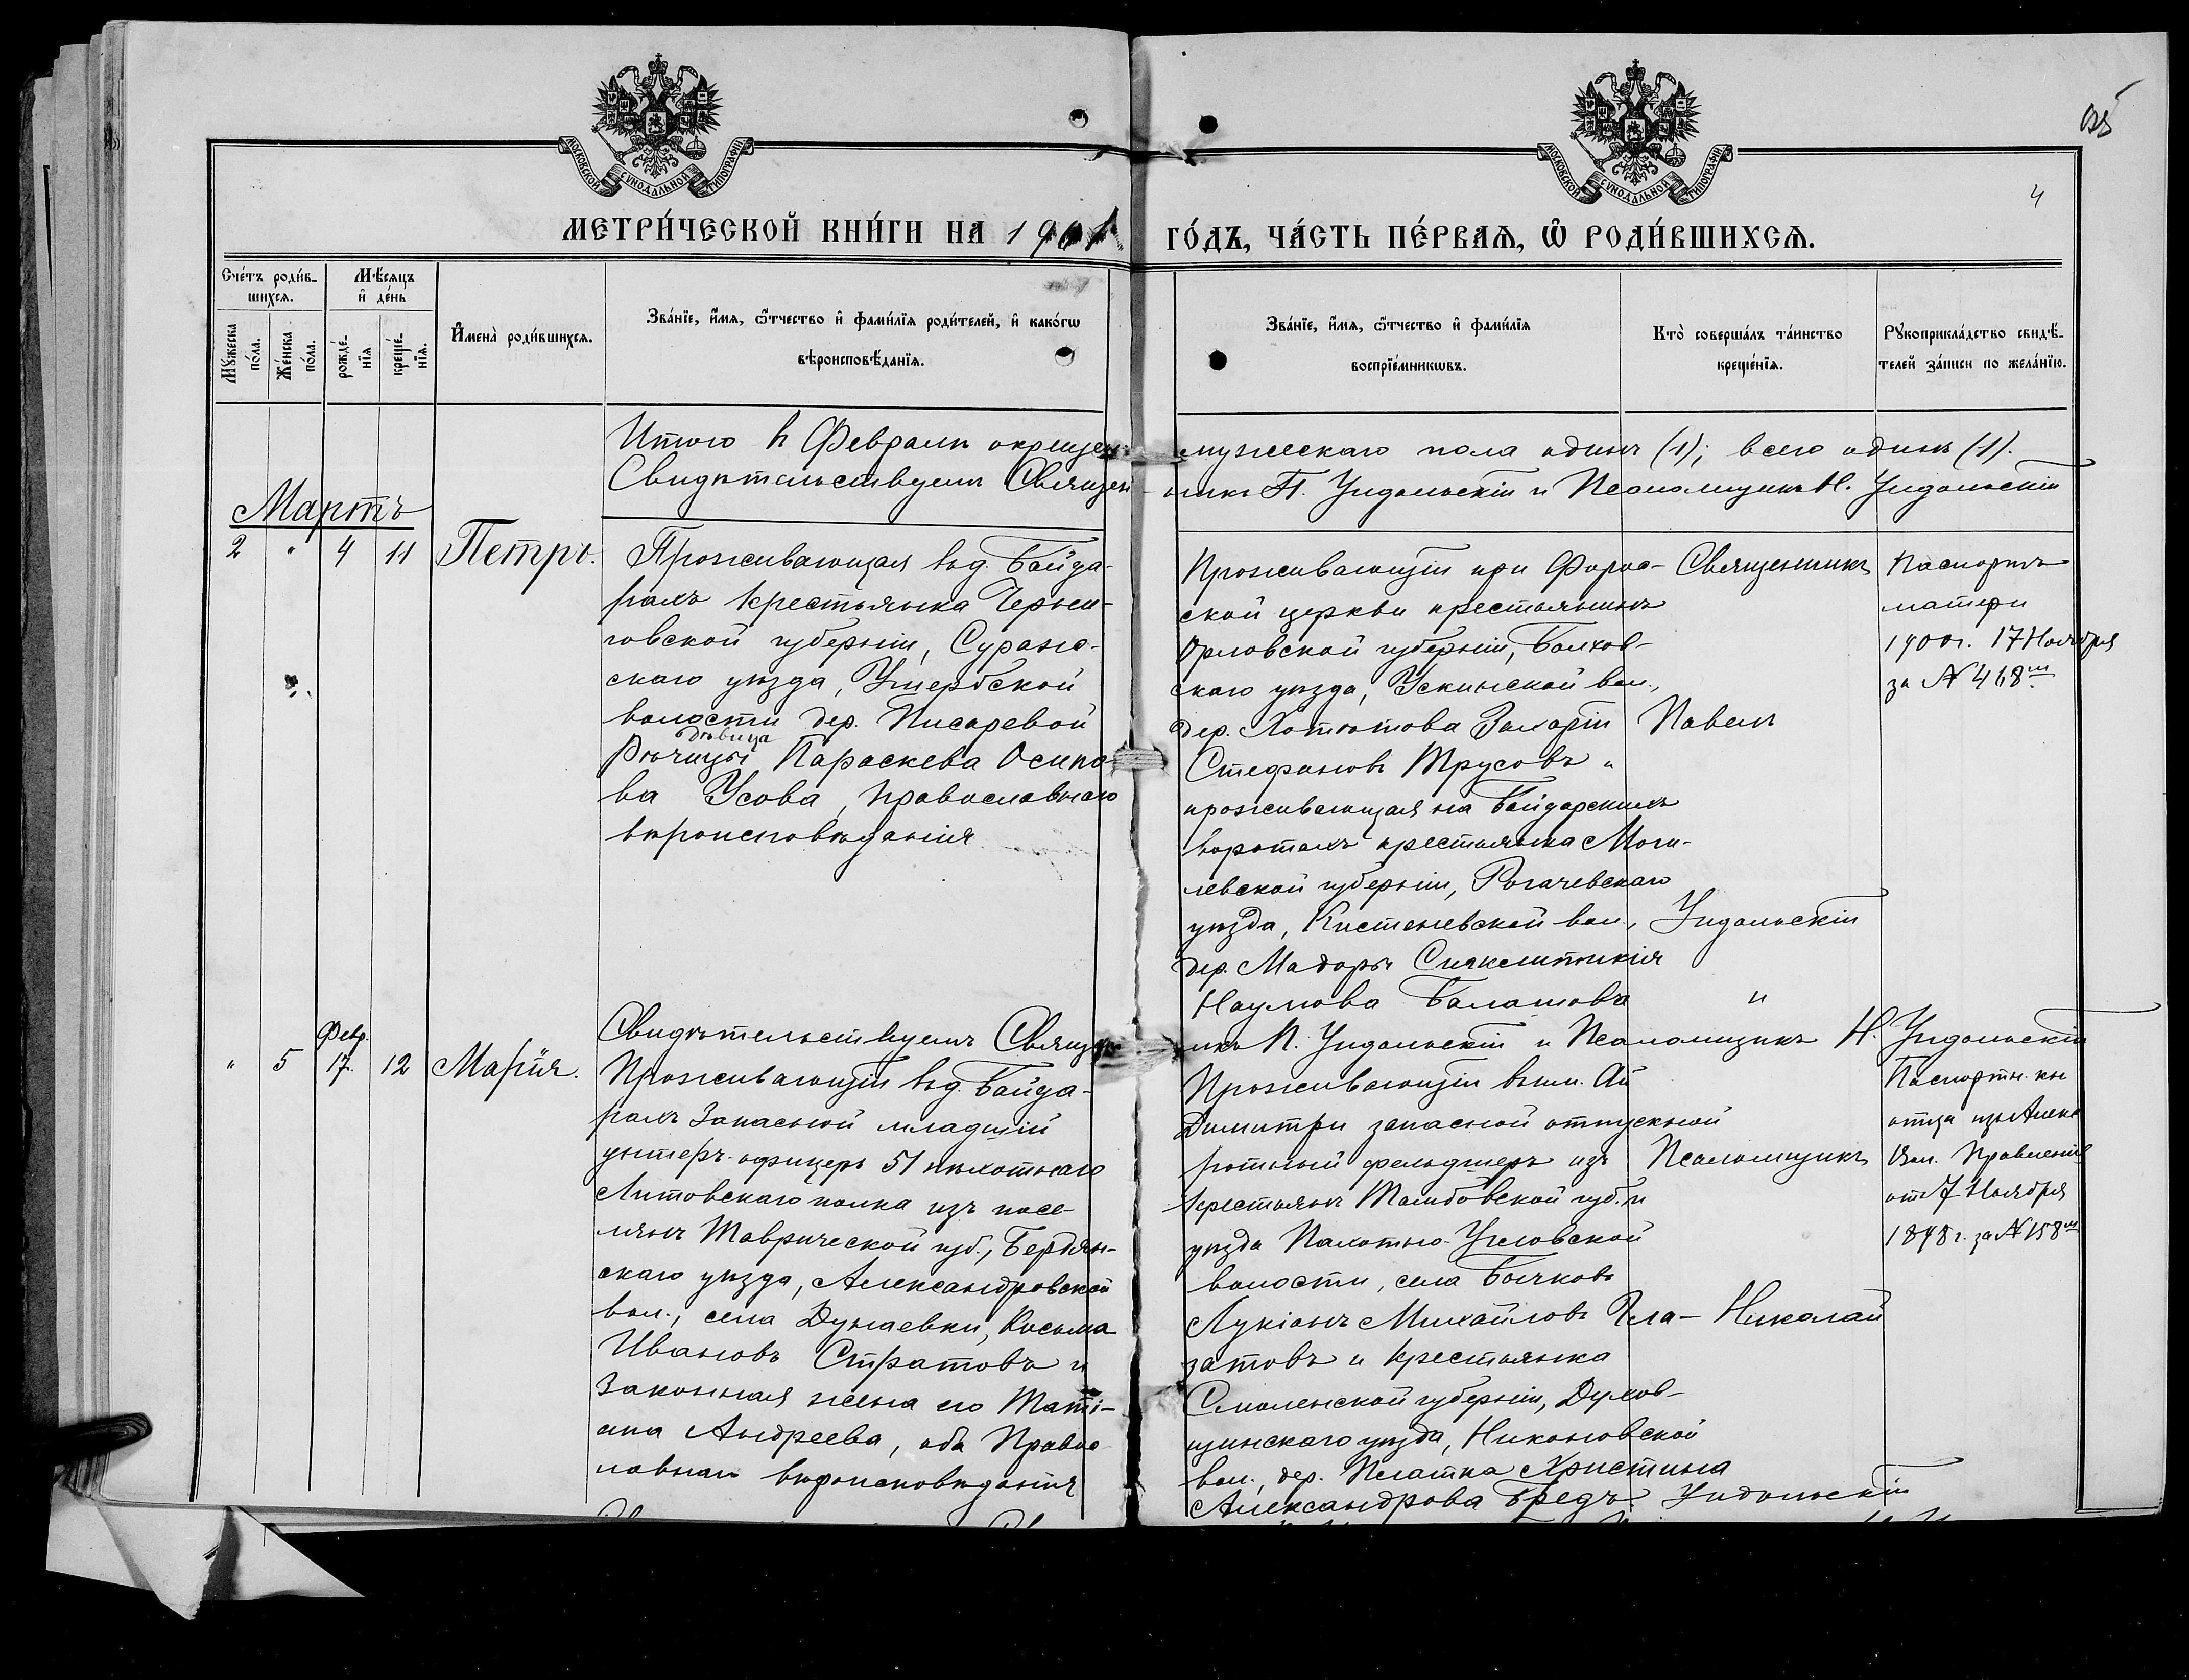 МОСКОВСКОЙ СѴНОДАЛЬНОЙ ТИПОГРАФІИ
МОСКОВСКОЙ СѴНОДАЛЬНОЙ ТИПОГРАФІИ
4
МЕТРИ́ЧЕСКОЙ КНИ́ГИ НА 1901 ГО́ДЪ, ЧА́СТЬ ПЕ́РВАѦ, Ѡ҆ РОДИ́ВШИХСѦ.
Сче́тъ роди́в-
шихсѧ.
Мꙋ́жеска
по́ла.
Же́нска
по́ла.
Мѣ́сяцъ
и҆ де́нь
рожде́-
нїѧ
креще́-
нїѧ.
И҆мена̀ роди́вшихсѧ.
Зва́нїе, и҆́мѧ, ѻ҆́тчество и҆ фами́лїѧ роди́телей, и҆ како́гѡ
вѣроисповѣ́данїѧ.
Зва́нїе, и҆́мѧ, ѻ҆́тчество и҆ фами́лїѧ
воспрїе́мникѡвъ.
Кто̀ соверша́лъ та́инство
креще́нїѧ.
Рꙋкоприкла́дство свидѣ́-
телей за́писи по жела́нїю.
Итого въ Февралѣ окрещено мужескаго пола одинъ (1); всего одинъ (1).
Свидѣтельствуемъ Священникъ П. Ундольскій и Псаломщикъ Н. Ундольскій
Мартъ
2 " 4 11 Петръ.
Проживающая въ д. Байда-
рахъ крестьянка Черни-
говской губерніи, Сураж-
скаго уѣзда,
волости дер. Писаревой
дѣвица
Рѣчицы Параскева Осипо-
ва Усова, православнаго
вѣроисповѣданія
Проживающій при Форос-
ской церкви крестьянинъ
Орловской губерніи, Болхов-
скаго уѣзда, вол.,
дер. Хотютова Захарій
Стефановъ Трусовъ и
проживающая на Байдарскихъ
воротахъ крестьянка Моги-
левской губерніи, Рогачевскаго
уѣзда, Кистеневской вол.,
дер. Мадоры Сигклитикія
Наумова Балашова
Священникъ
Павелъ
Ундольскій
"
Паспортъ
матери
1900 г. 17 Ноября
за № 468м
Свидѣтельствуемъ Священникъ П. Ундольскій и Псаломщикъ Н. Ундольскій
Февр.
" 5 17. 12 Марія.
Проживающій въ д. Байда-
рахъ Запасной младшій
унтеръ-офицеръ 51 пѣхотнаго
Литовскаго полка изъ посе-
лянъ Таврической губ., Бердян-
скаго уѣзда, Александровской
вол., села Дунаевки, Косьма
Ивановъ Стратовъ и
Законная жена его Таті-
ана Андреева, оба Правос
лавнаго вѣроисповѣданія
Проживающій въ им. Ай
Димитри запасной отпускной
ротный фельдшеръ изъ
крестьянъ Тамбовской губ. и
уѣзда Пахотно-Угловской
волости, села Бычковъ
Лукіанъ Михайловъ Гла-
затовъ и крестьянка
Смоленской губерніи, Духов-
щинскаго уѣзда,
вол., дер. Христина
Александрова
Псаломщикъ
Николай
Ундольскій
Паспортн. кн
отца изъ Алекс
Вол. Правленія
отъ 7 Ноября
1898 г. за № 158м